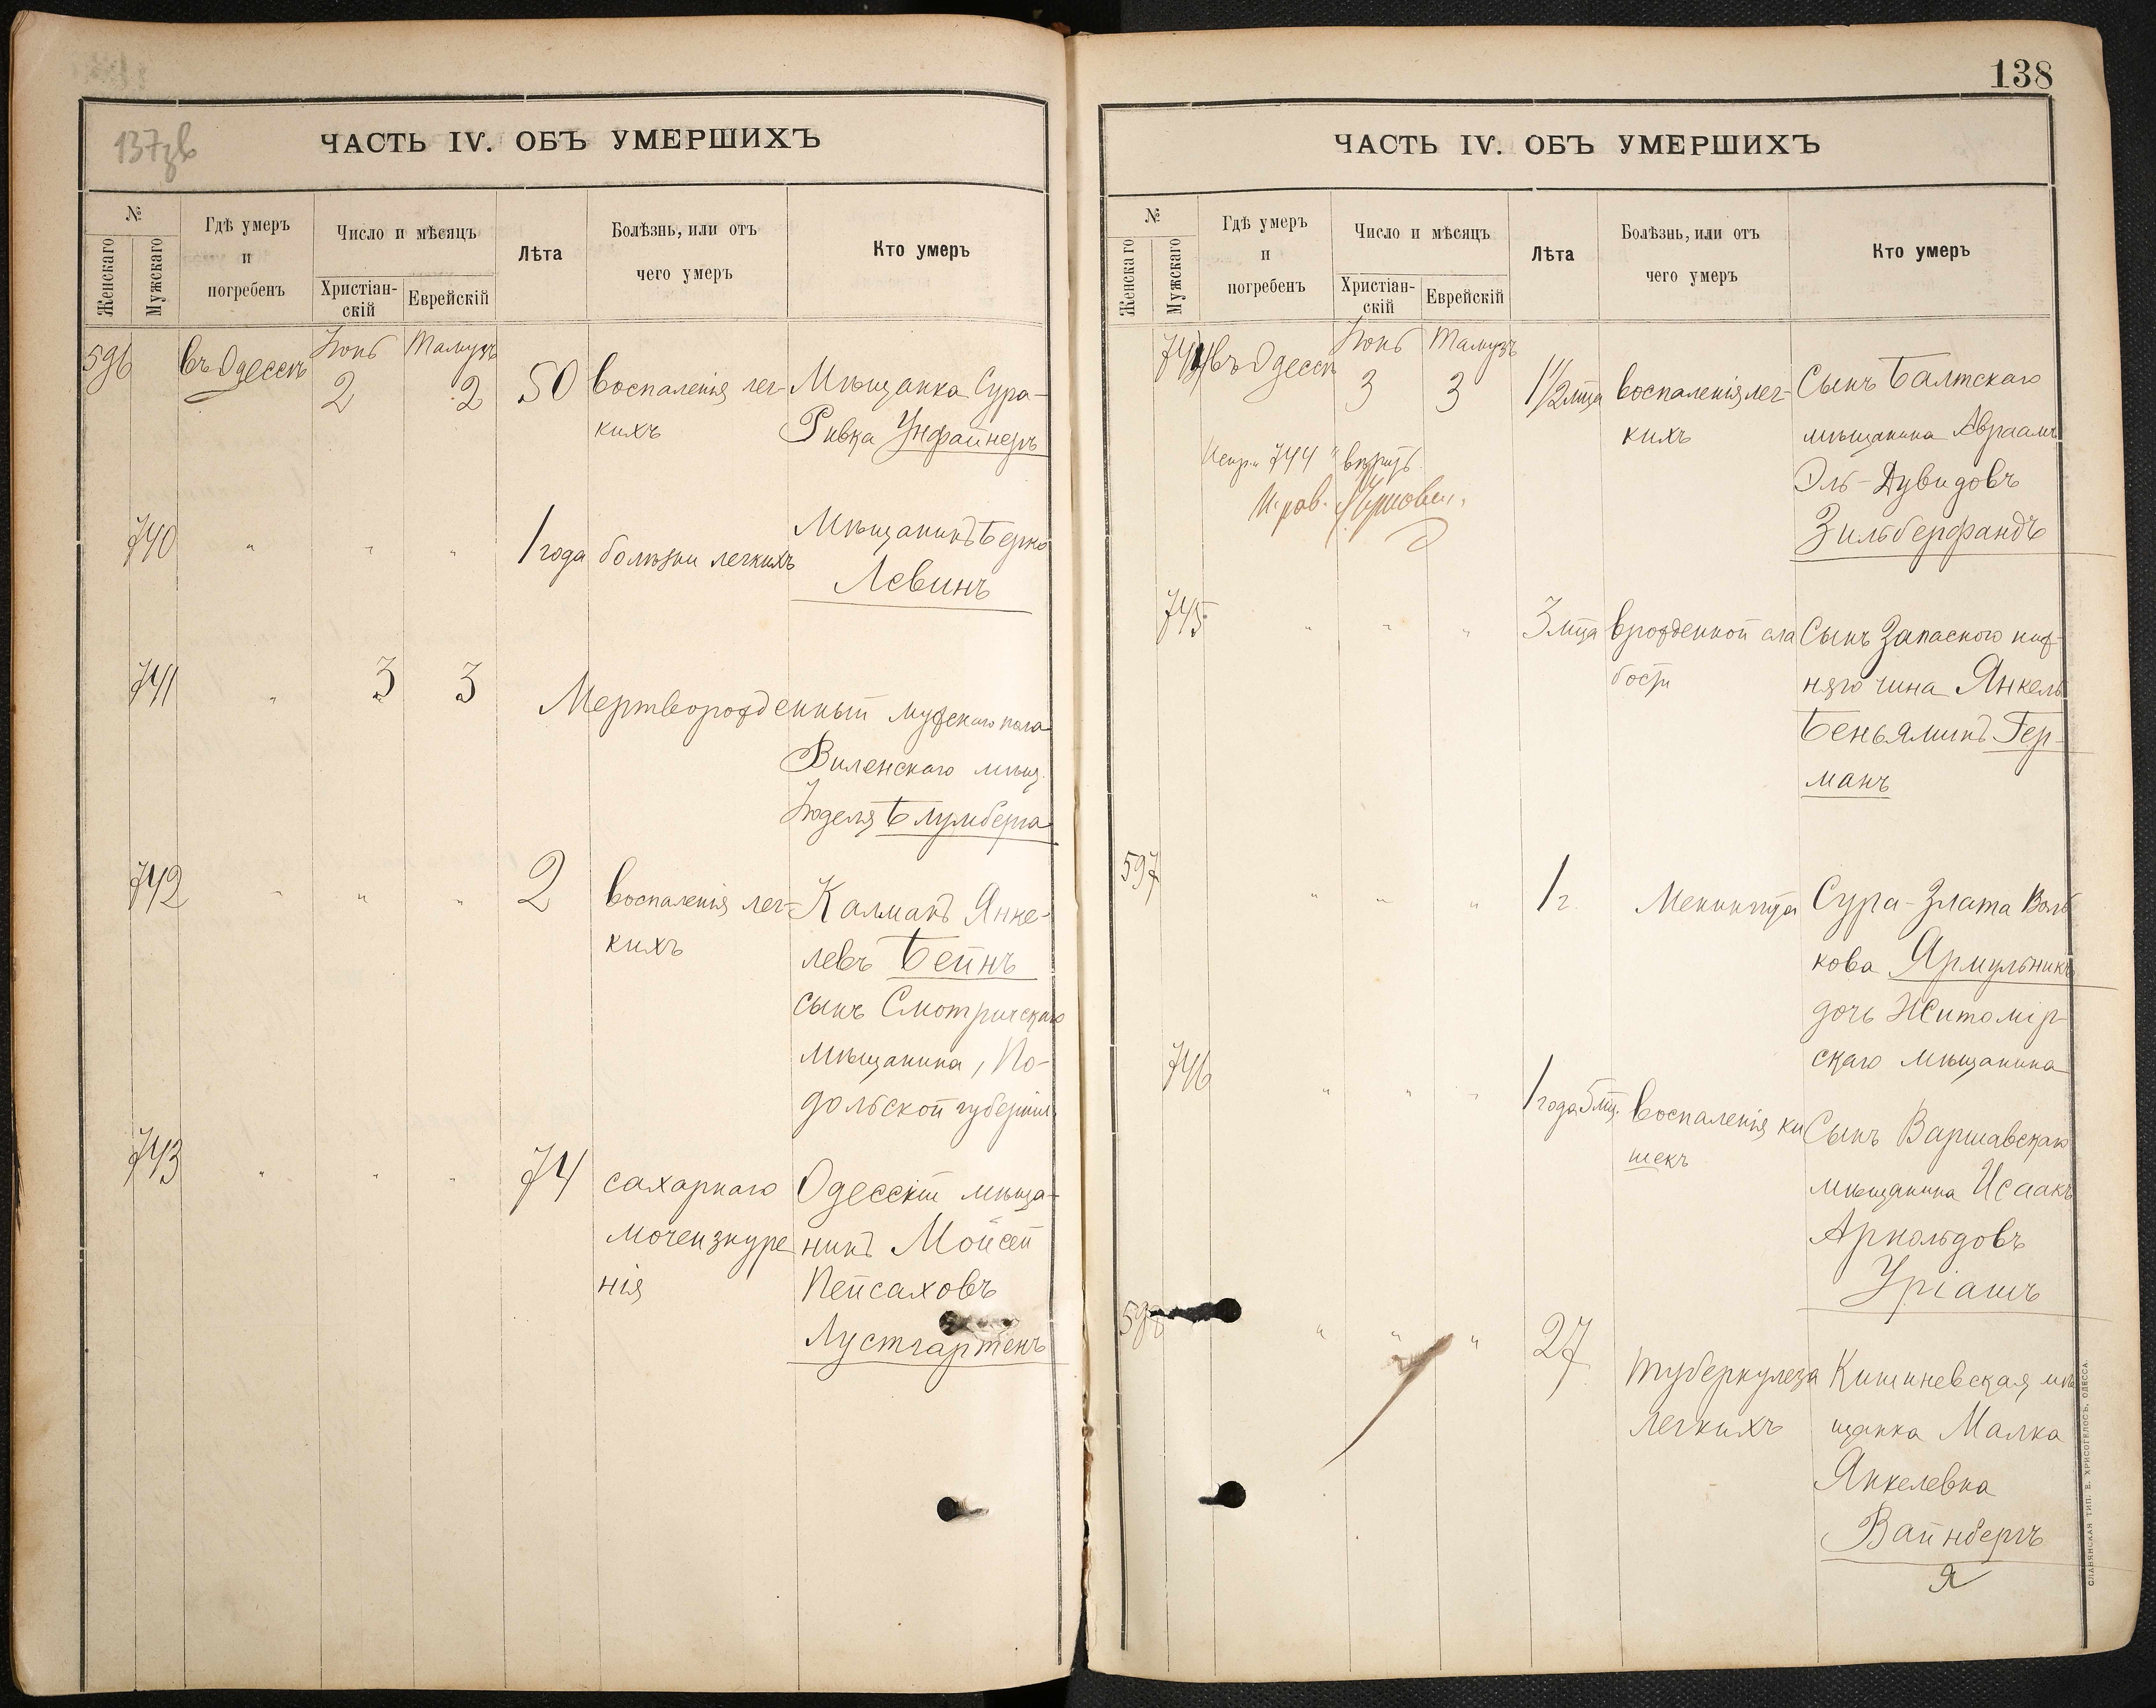 137зв
ЧАСТЬ IV. ОБЪ УМЕРШИХЪ
№
Женскаго
Мужскаго
Гдѣ умеръ
и
погребенъ
Число и мѣсяцъ
Христіан-
скій
Еврейскій
Лѣта
Болѣзнь, или отъ
чего умеръ
Кто умеръ
Іюнь Тамузъ
596 въ Одессѣ 2 2 50 воспаленія лег- Мѣщанка Сура-
кихъ Ривка Унфайнеръ
740 " " " 1 года болѣзни легкихъ Мѣщанинъ Берко
Левинъ
741 " 3 3 Мертворожденный мужскаго пола
Виленскаго мѣщ.
Юделя Блумберга
742 " " " 2 воспаленія лег- Калманъ Янке-
кихъ левъ Бейнъ
сынъ Смотричскаго
мѣщанина, По-
дольской губерніи
743 " " " 74 сахарнаго Одесскій мѣща-
мочеизнуре нинъ Мойсей
нія Пейсаховъ
Лустгартенъ
138
ЧАСТЬ IV. ОБЪ УМЕРШИХЪ
№
Женскаго
Мужскаго
Гдѣ умеръ
и
погребенъ
Число и мѣсяцъ
Христіан-
скій
Еврейскій
Лѣта
Болѣзнь, или отъ
чего умеръ
Кто умеръ
Іюнь Тамузъ
744 въ Одессѣ 3 3 1 1/2 мца воспаленія лег- Сынъ Балтскаго
кихъ мѣщанина Авраамъ
Эль-Дувидовъ
Зильберфандъ
Испр. 744 "вѣрить
И. рав.
745 " " " 3 мца врожденной сла Сынъ Запаснаго ниж-
бости няго чина Янкель
Беньяминъ Гер-
манъ
597 " " " 1 г. Менингита Сура-Злата Воль
кова Ярмульникъ
дочь Житомір-
скаго мѣщанина
746 " " " 1 года 5 мц. воспаленія ки Сынъ Варшавскаго
шекъ мѣщанина Исаакъ
Арнольдовъ
Уріашъ
598 " " " 27 туберкулеза Кишиневская мѣ
легкихъ щанка Малка
Янкелевна
Вайнбергъ
Я
СЛАВЯНСКАЯ ТИП. Е. ХРИСОГЕЛОСЪ, ОДЕССА.